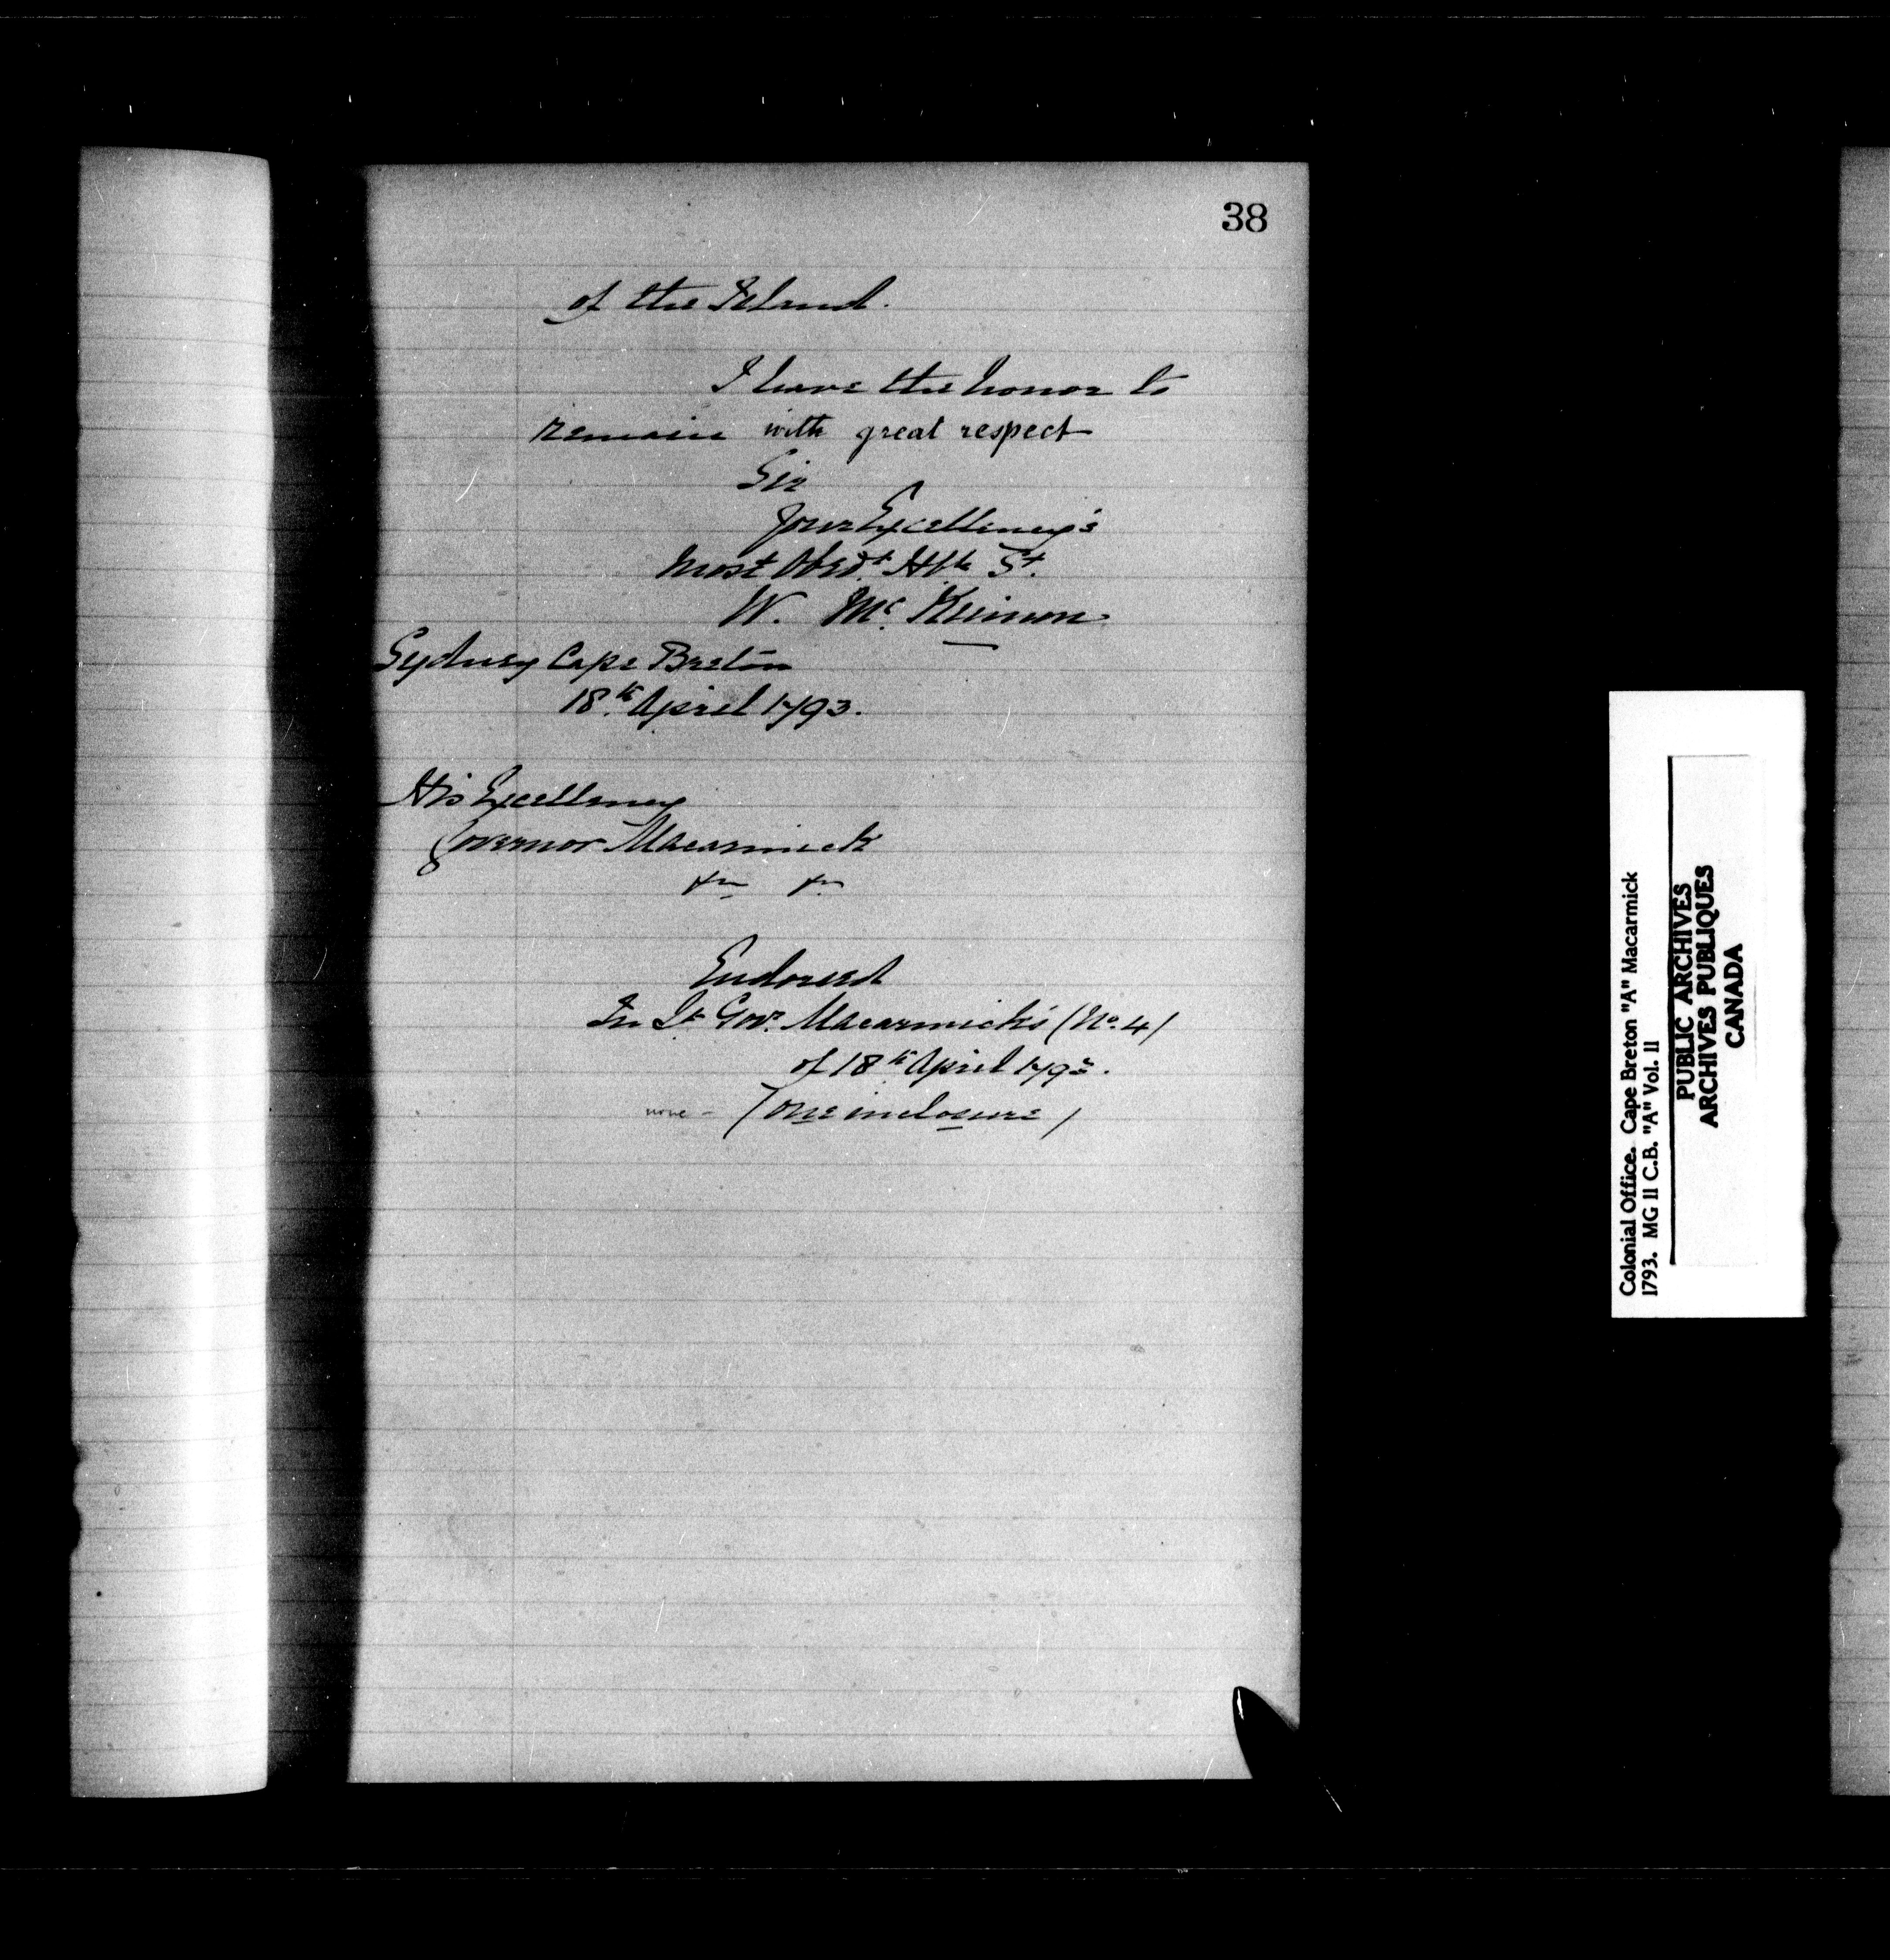 38
of the Island.
I have the honor to
remain with great respect
Sir
Your Excellency's
Most Obedt. Hble St.
W. Mc. Kinnon
Sydney Cape Breton
18th April 1793.
His Excellency
Governor Macarmick
&c &c
Endorsed
In Lt Govr. Macarmick's (No. 4)
of 18th April 1793.
none - (one inclosure)
Colonial Office. Cape Breton "A" Macarmick
1793. MG 11 C.B. "A" Vol. 11
PUBLIC ARCHIVES
ARCHIVES PUBLIQUES
CANADA